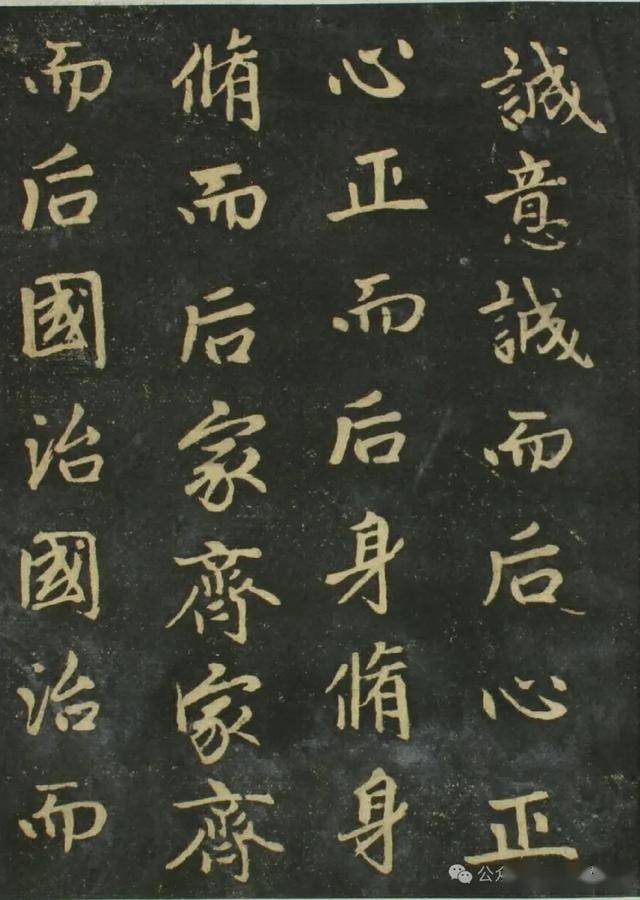 誠意誠而后心正
心正而后身脩身
脩而后家齊家齊
而后國治國治而
公众